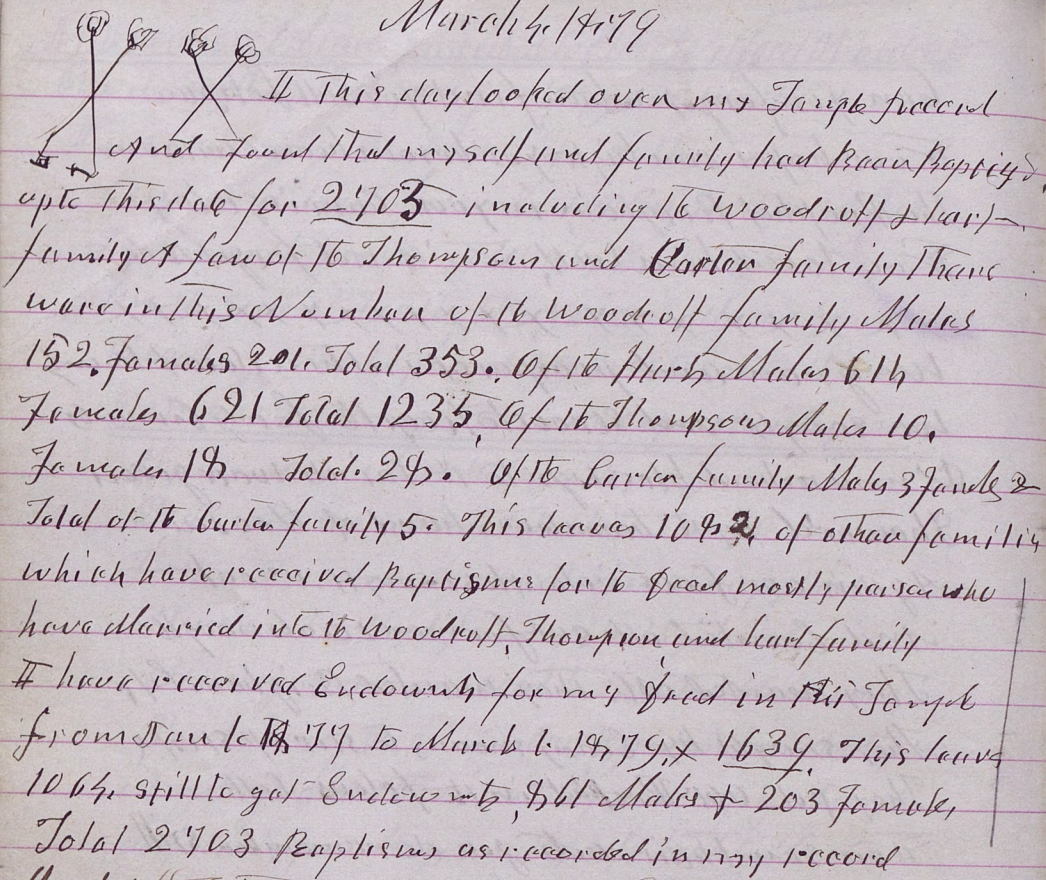 March 4, 1879
I This day looked over my Temple record
And found that myself and family had Been Baptized
upto this date for 2703 including the Woodruff & Hart
family A few of the Thompsons and Carter family There
were in this Number of the Woodruff family Males
152. Females 201. Total 353. Of the Hart's Males 614
Females 621 Total 1235, Of the Thompsons Males 10.
Females 18 Total. 28. Of the Carter family Males 3 Females 2
Total of the Carter family 5. This leaves 1082. of other families
which have received Baptisms for the dead mostly person who
have Married into the Woodruff, Thompson and hart family
I have received Endowmts for my dead in this Temple
from Jan 1. 1877 to March 1. 1879, 1639. This leave
1064, still to get Endowmts, 861 Males & 203 Females
Total 2703 Baptisms as recorded in my record